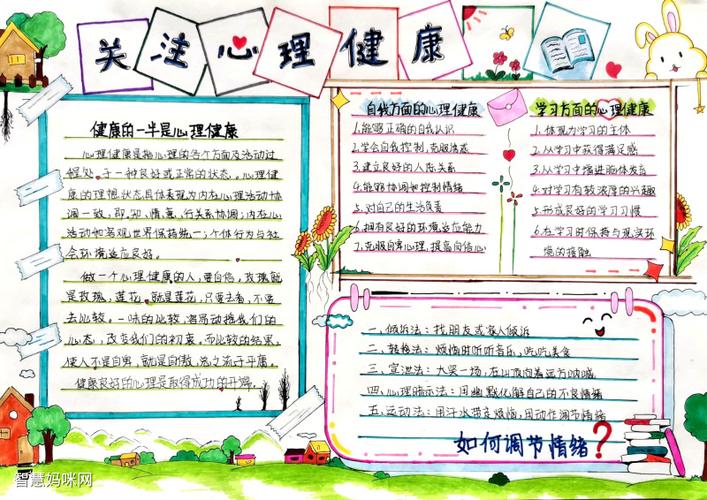 关注心理健康
健康的一半是心理健康
心理健康是指心理的各个方面及活动过
程处于一种良好或正常的状态。心理健
康的理想状态具体表现为内在心理活动协
调一致，即，知，情，意，行关系协调；内在心
活动和客观世界保持统一；个体行为与社
会环境适应良好。
做一个心理健康的人，要自信，玫瑰就
是玫瑰，莲花，就是莲花，只要去看，不要
去比较。一味的比较，
心态，改变我们的初衷，而比较的结果，
使人不是自卑，就是自傲，总之流于平庸。
健康良好的心理是取得成功的开端。
自我方面的心理健康
1.能够正确的自我认识
2.学会自我控制，克服
3.建立良好的人际关系
4.能够协调和控制情绪
5.对自己的生活负责
6.拥有良好的环境适应能力
7.克服自卑心理，提高自信心
学习方面的心理健康
1.体现为学习的主体
2.从学习中获得满足感
3.从学习中增进脑体发育
4.对学习有较浓厚的兴趣
5.形成良好的学习习惯
6.在学习时保持与现实环
境的接触
一、倾诉法：找朋友或家人倾诉
二、转移法：烦恼时听听音乐，吃吃美食
三、宣泄法：大哭一场，在山顶向着远方呐喊
四、心理暗示法：用幽默化解自己的不良情绪
五、运动法：用汗水带走烦恼，用动作调节情绪
如何调节情绪？
智慧妈咪网